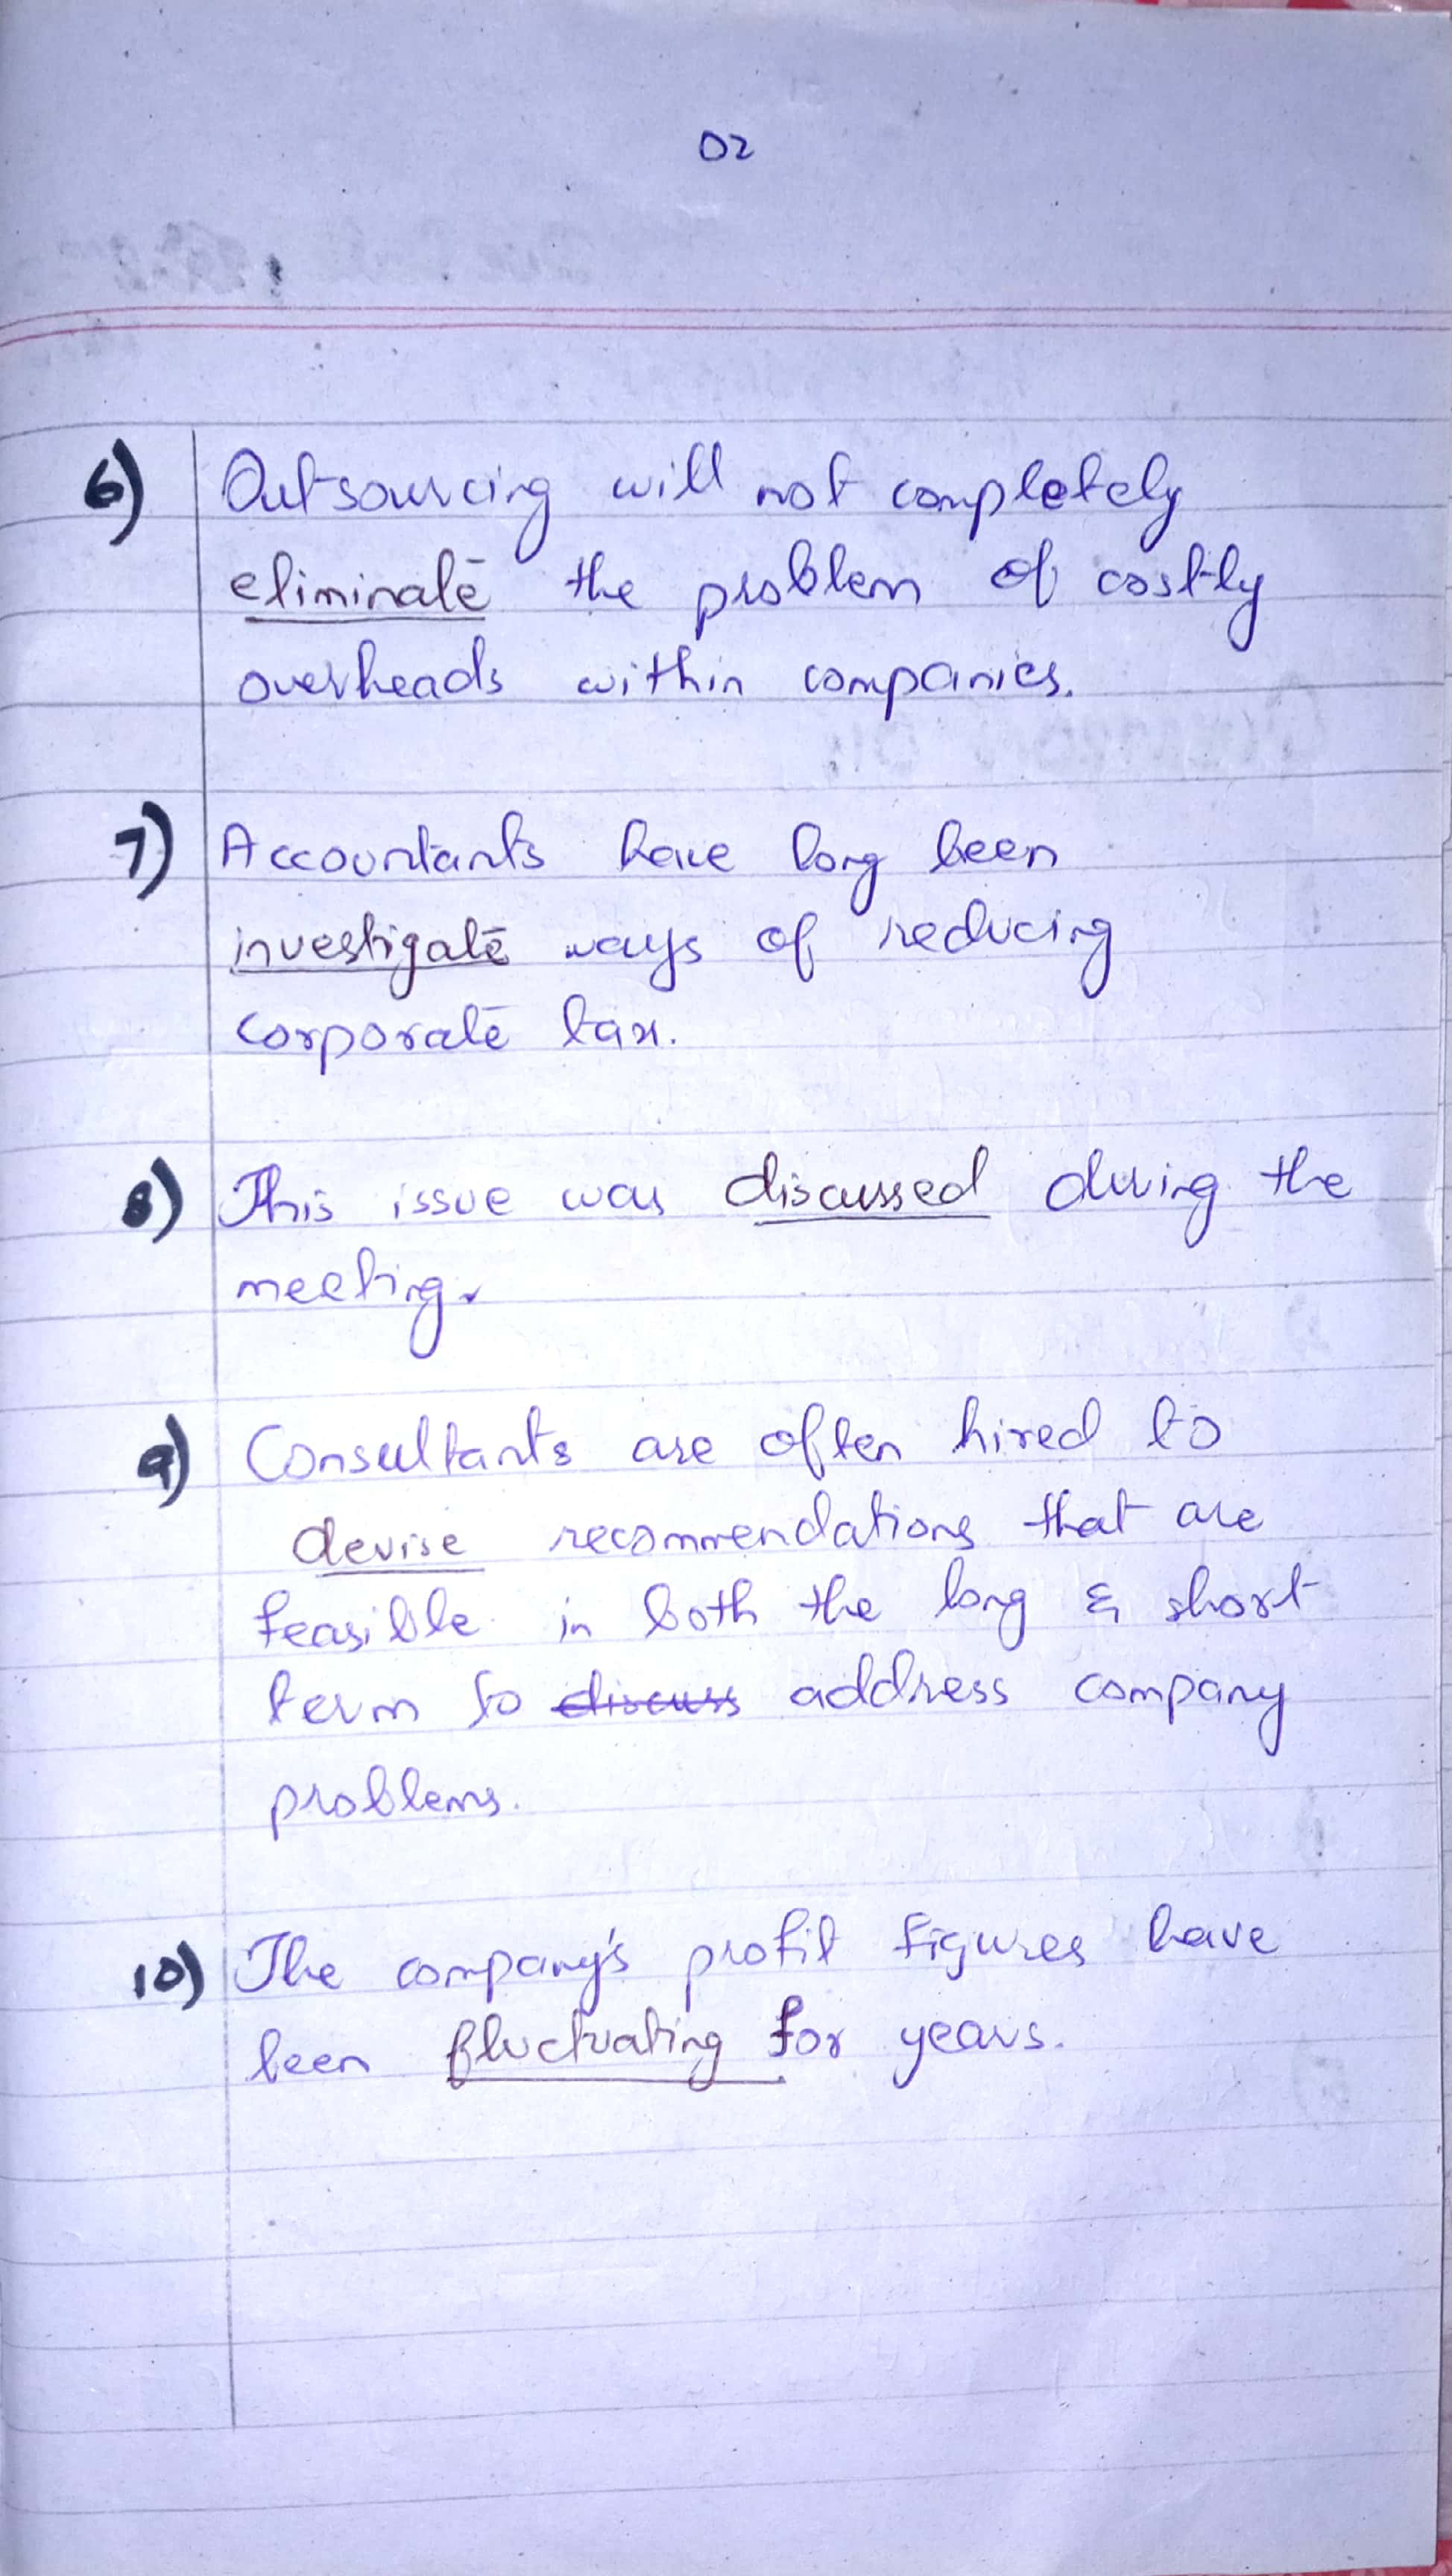 02
6) Outsourcing will not completely
eliminate the problem of costly
overheads within companies.
7) Accountants have long been
investigate ways of reducing
corporate tax.
8) This issue was discussed during the
meeting.
9) Consultants are often hired to
devise recommendations that are
feasible in both the long & short
term to discuss address company
problems.
10) The company's profit figures have
been fluctuating for years.